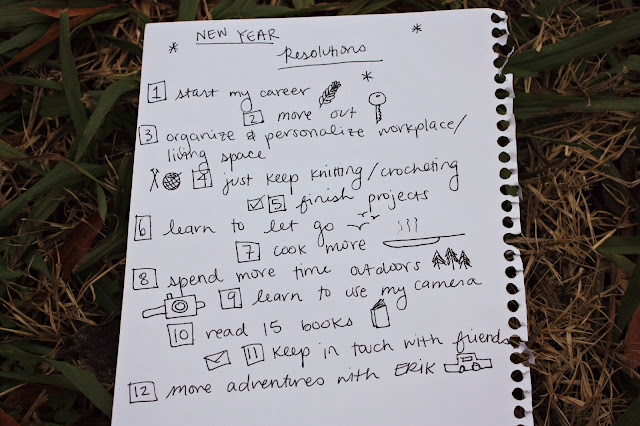 NEW YEAR
Resolutions
1 start my career
2 move out
3 organize & personalize workplace/
living space
4 just keep knitting/crocheting
5 finish projects
6 learn to let go
7 cook more
8 spend more time outdoors
9 learn to use my camera
10 read 15 books
11 keep in touch with friends
12 more adventures with ERIK